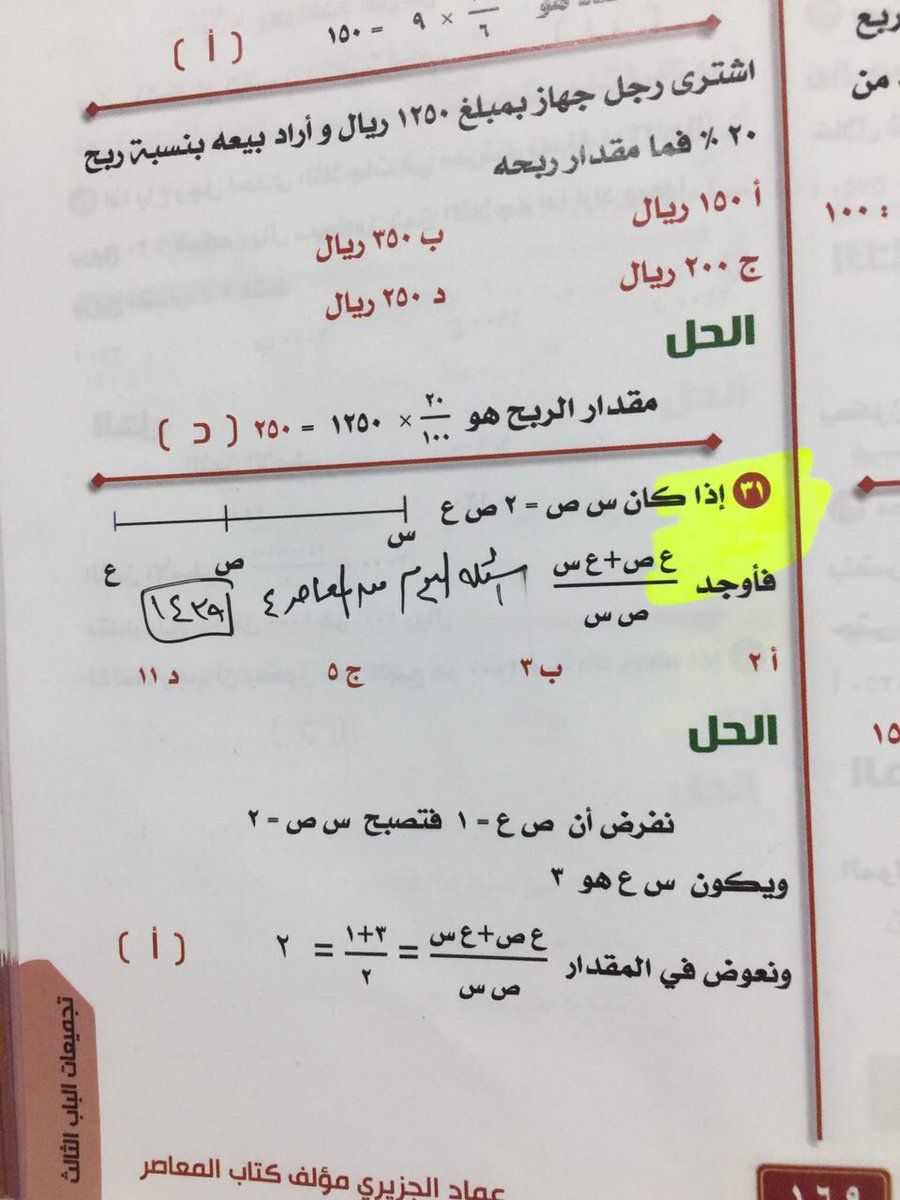 هو ٦ × ٩ = ١٥٠
( أ )
اشترى رجل جهاز بمبلغ ١٢٥٠ ريال و أراد بيعه بنسبة ربح
٢٠ % فما مقدار ربحه
أ ١٥٠ ريال ب ٣٥٠ ريال
ج ٢٠٠ ريال د ٢٥٠ ريال
الحل
مقدار الربح هو ٢٠/١٠٠ × ١٢٥٠ = ٢٥٠ ( د )
٣١ إذا كان س ص = ٢ ص ع
س ص ع
فأوجد ع ص + ع س / ص س
اليوم من المعاصر ٤ ١٤٣٩
أ ٢ ب ٣ ج ٥ د ١١
الحل
نفرض أن ص ع = ١ فتصبح س ص = ٢
ويكون س ع هو ٣
ونعوض في المقدار ع ص + ع س / ص س = ٣+١ / ٢ = ٢ ( أ )
تجميعات الباب الثالث
عماد الجزيري مؤلف كتاب المعاصر
ربع
من
: ١٠٠
١٥